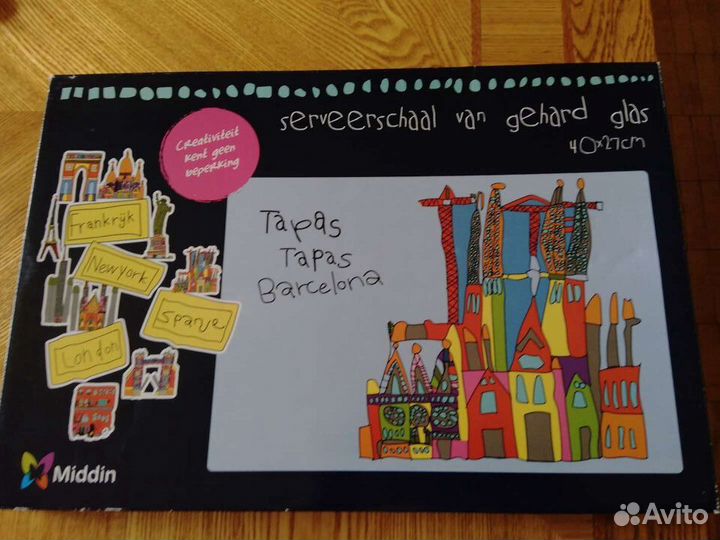 serveerschaal van gehard glas
40x27cm
Creativiteit
kent geen
beperking
Tapas
Tapas
Barcelona
Frankrijk
New York
Spanje
London
Middin
Avito